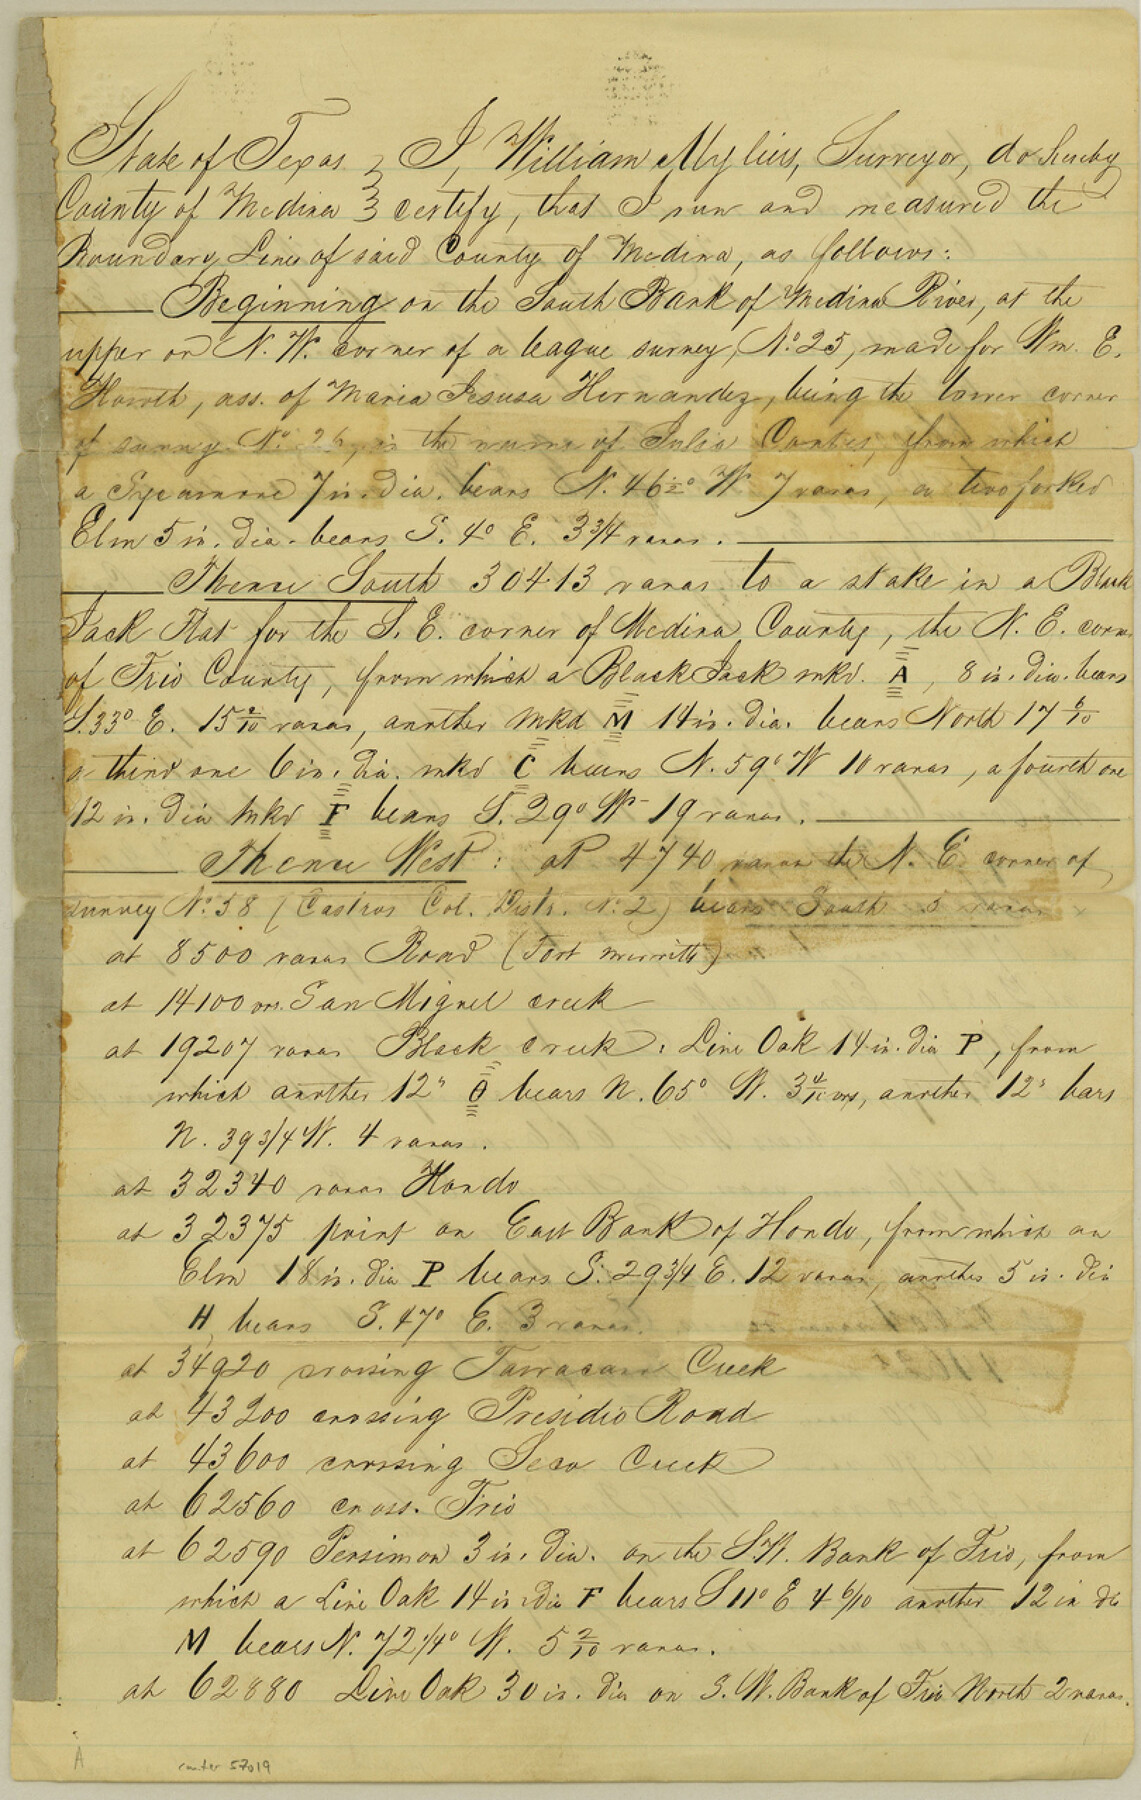 State of Texas } I, William Mylius, Surveyor, do hereby
County of Medina } certify, that I run and measured the
Boundary Lines of said County of Medina, as follows:
Beginning on the South Bank of Medina River, at the
upper or N. W. corner of a league survey, No. 25, made for Wm. E.
Howth, ass. of Maria Jesusa Hernandez, being the lower corner
of survey No. 26, in the name of Julio Cantes, from which
a Sycamore 7 in. dia. bears N. 46½° W 7 varas, a two forked
Elm 5 in. dia. bears S. 4° E. 3 3/4 varas.
Thence South 30413 varas to a stake in a Black
Jack Flat for the S. E. corner of Medina County, the N. E. corner
of Frio County, from which a Black Jack mkd. A, 8 in. dia. bears
S. 33° E. 15 2/10 varas, another mkd M 14 in. dia. bears North 17 6/10
a third one 6 in. dia. mkd C bears N. 59° W 10 varas, a fourth one
12 in. dia mkd F bears S. 29° W 19 varas.
Thence West: at 4740 varas the N. E. corner of
survey No. 58 (Castros Col. Distr. No. 2) bears South 5 varas
at 8500 varas Road (Fort Merritt)
at 14100 vrs. San Miguel creek
at 19207 varas Black creek: Live Oak 14 in. dia P, from
which another 12" O bears N. 65° W. 3 4/10 vrs, another 12" bars
N. 39 3/4 W. 4 varas.
at 32340 varas Hondo
at 32375 point on East Bank of Hondo, from which an
Elm 18 in. dia P bears S. 29 3/4 E. 12 varas, another 5 in. dia
H bears S. 47° E. 3 varas.
at 34920 crossing Tawacani Creek
at 43200 crossing Presidio Road
at 43600 crossing Seco Creek
at 62560 cross. Frio
at 62590 Persimon 3 in. dia. on the S.W. Bank of Frio, from
which a Live Oak 14 in dia F bears S 11° E 4 6/10 another 12 in dia
M bears N. 72 1/4° W. 5 2/10 varas.
at 62880 Live Oak 30 in. dia on S. W. Bank of Frio North 2 varas.
A
counter 57019